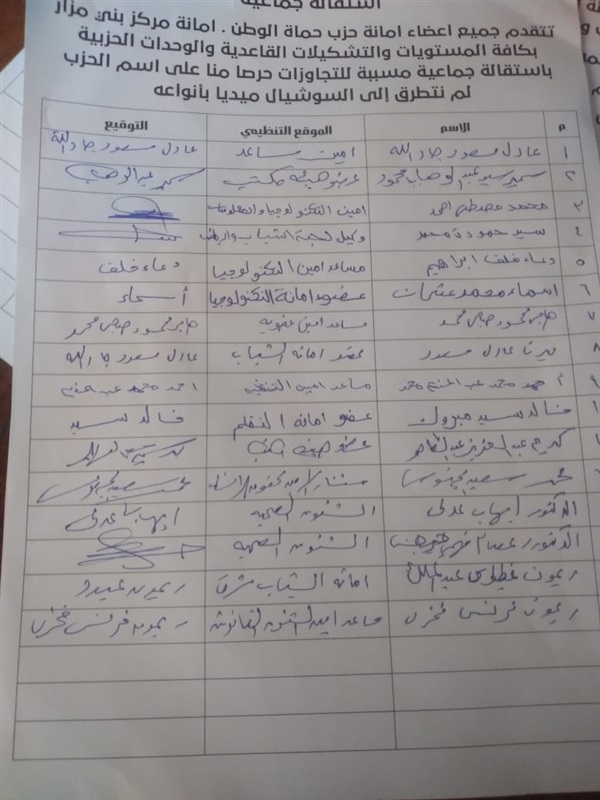 استقالة جماعية
تتقدم جميع اعضاء امانة حزب حماة الوطن . امانة مركز بني مزار
بكافة المستويات والتشكيلات القاعدية والوحدات الحزبية
باستقالة جماعية مسببة للتجاوزات حرصا منا على اسم الحزب
لم نتطرق إلى السوشيال ميديا بأنواعه
م الاسم الموقع التنظيمي التوقيع
١ عادل مسعود جاد الله امين مساعد عادل مسعود جاد الله
٢ سمير سيد عبد الوهاب محمود عضو هيئة مكتب سمير عبد الوهاب
٣ محمد مصطفى احمد امين التكنولوجيا والمعلومات
٤ سيد حمودة محمد وكيل لجنة الشباب
٥ دعاء خلف ابراهيم مساعد امين التكنولوجيا دعاء خلف
٦ اسماء محمد عضو امانة التكنولوجيا أسماء
٧ صابر محمود محمد مساعد امين عضوية صابر محمود محمد
٨ عادل مسعود عضو امانة الشباب عادل مسعود جاد الله
٩ احمد محمد عبد المنعم محمد مساعد امين احمد محمد عبد المنعم
خالد سيد مبروك عضو امانة خالد سيد
كريم عبد العزيز عبد الظاهر عضو
محمد سعيد
الدكتور ايهاب عدلي الشئون الصحية ايهاب عدلي
الدكتور عصام الشئون الصحية
ريمون عبد الملك امانة الشباب ريمون
ريمون فرنسي فخري مساعد امين الشئون القانونية ريمون فرنسي فخري